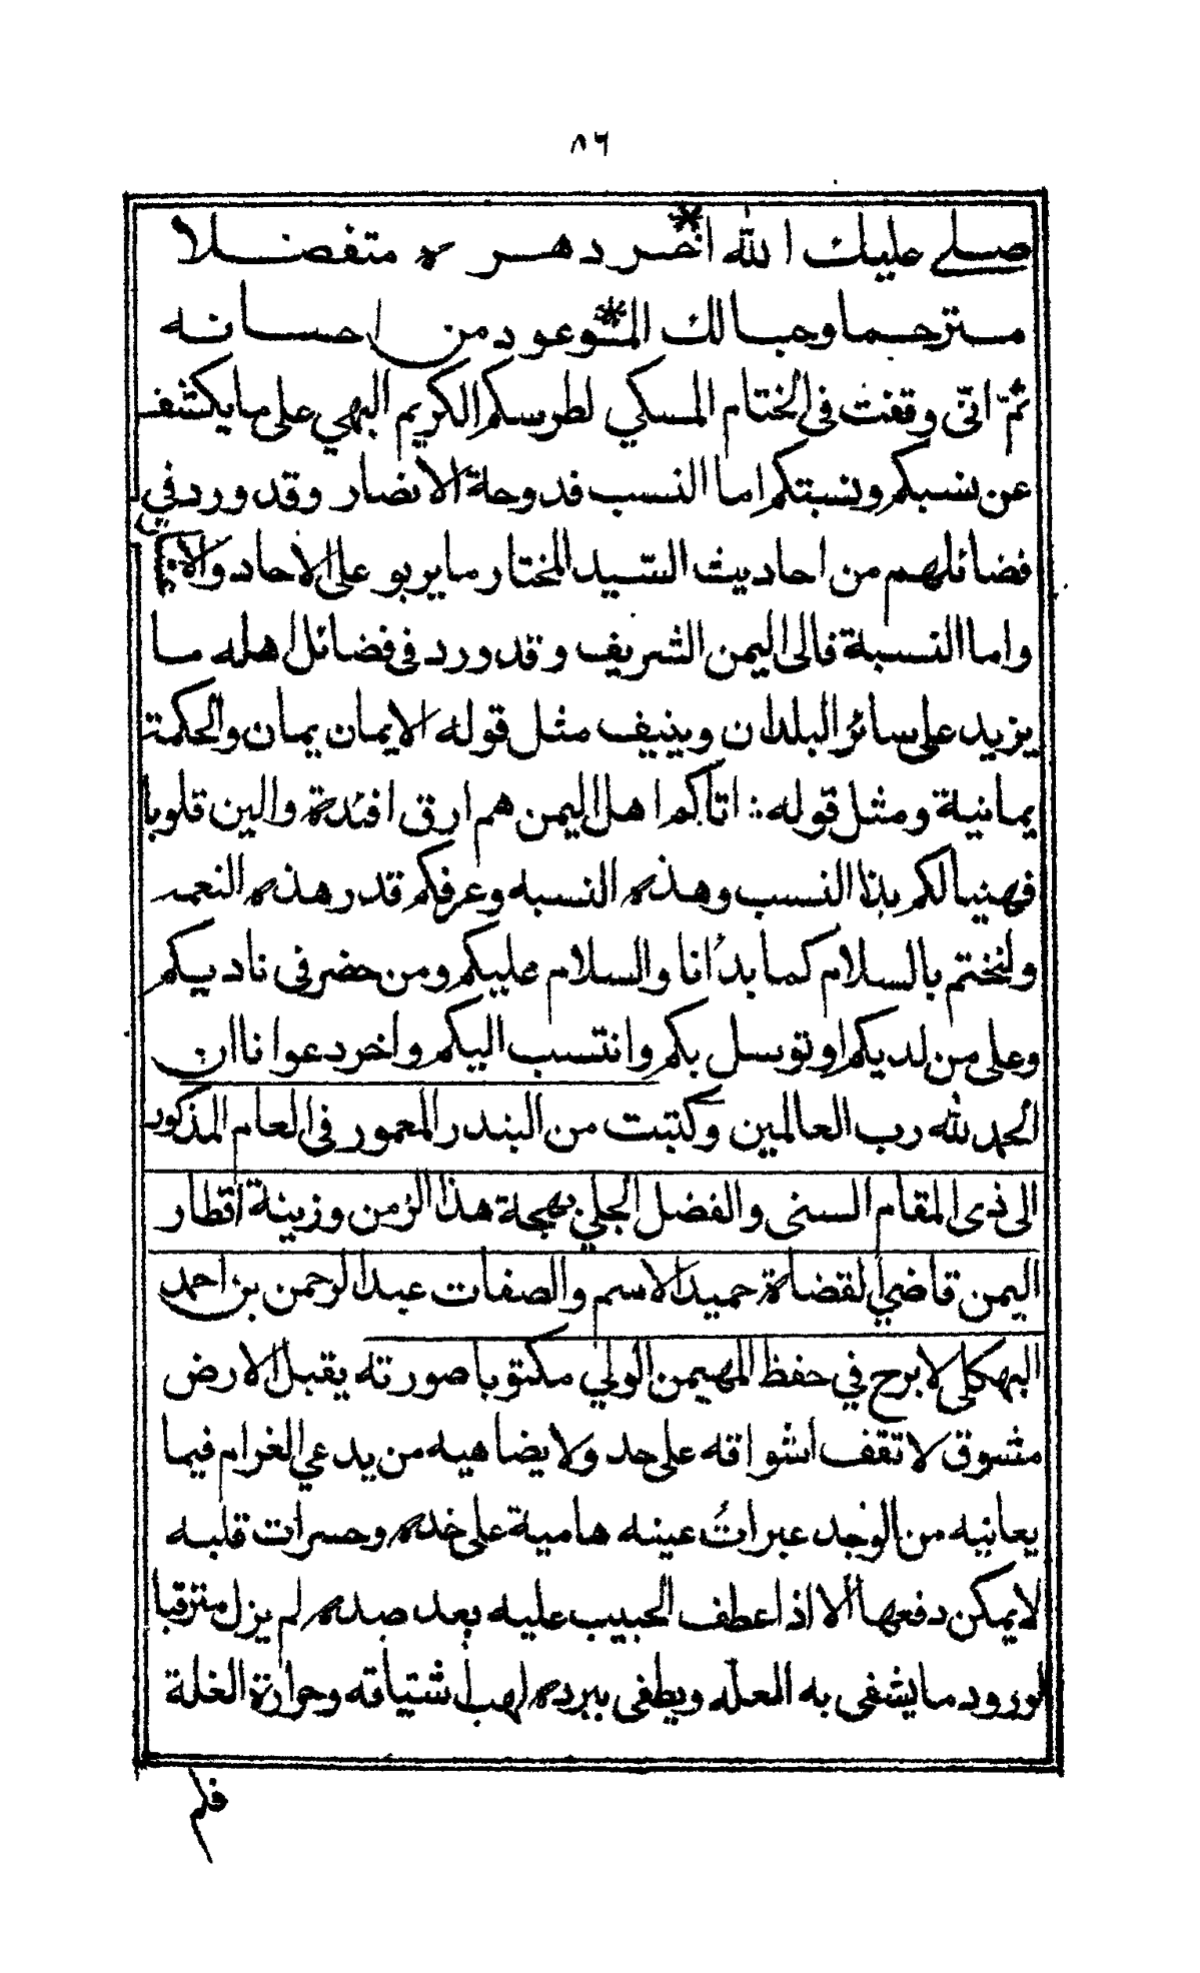 ٨٦
صلى عليك الله اخر دهره متفضلا
مسترحما وحبالك الموعود من احسانه
ثم انى وقفت فى الختام المسكي لطرسكم الكريم البهي على ما يكشف
عن نسبكم ونسبتكم اما النسب فدوحة الانصار وقد ورد في
فضائلهم من احاديث السيد المختار ما يربو على الاحاد والا
واما النسبة فالى اليمن الشريف وقد ورد فى فضائل اهله ما
يزيد على سائر البلدان وينيف مثل قوله الايمان يمان والحكمة
يمانية ومثل قوله : اتاكم اهل اليمن هم ارق افئدة والين قلوبا
فهنيا لكم بذا النسب وهذه النسبه وعرفكم قدر هذه النعمه
ولنختم بالسلام كما بدأنا والسلام عليكم ومن حضر فى ناديكم
وعلى من لديكم او توسل بكم وانتسب اليكم واخر دعوانا ان
الحمد لله رب العالمين وكتبت من البندر المعمور فى العام المذكور
الى ذى المقام السنى والفضل الجلي بهجة هذا الزمن وزينة اقطار
اليمن قاضي القضاة حميد الاسم والصفات عبد الرحمن بن احمد
البهكلى لا برح في حفظ المهيمن الولي مكتوبا صورته يقبل الارض
مشوق لا تقف اشواقه على حد ولا يضاهيه من يدعي الغرام فيما
يعانيه من الوجد عبراتُ عينه هامية على خده وحسرات قلبه
لا يمكن دفعها الا اذا عطف الحبيب عليه بعد صده لم يزل مترقبا
لورود ما يشفى به المعلّه ويطفى ببرده لهب اشتياقه وحرارة الغلة
فلم